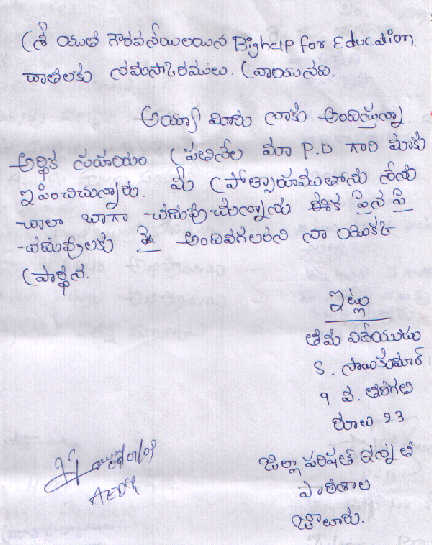 శ్రీ యుత గౌరవనీయులయిన Bighelp for Education
దాతలకు నమస్కారములు. వ్రాయునది.
అయ్యా మీరు నాకు అందిస్తున్నా
ఆర్థిక సహాయం ప్రతినెల మా P.D గారి మాకు
ఇప్పించుచున్నారు. మీ ప్రోత్సాహముతోను నేను
చాలా బాగా చదువుచున్నాను ఇక పైన పై
చదువులకు అందివగలరని నా యొక్క
ప్రార్థన.
ఇట్లు
తమ విదేయుడు
S. సాయికుమార్
9 వ. తరగతి
రూలు 23
జిల్లా పరిషత్ ఉన్నత
పాఠశాల